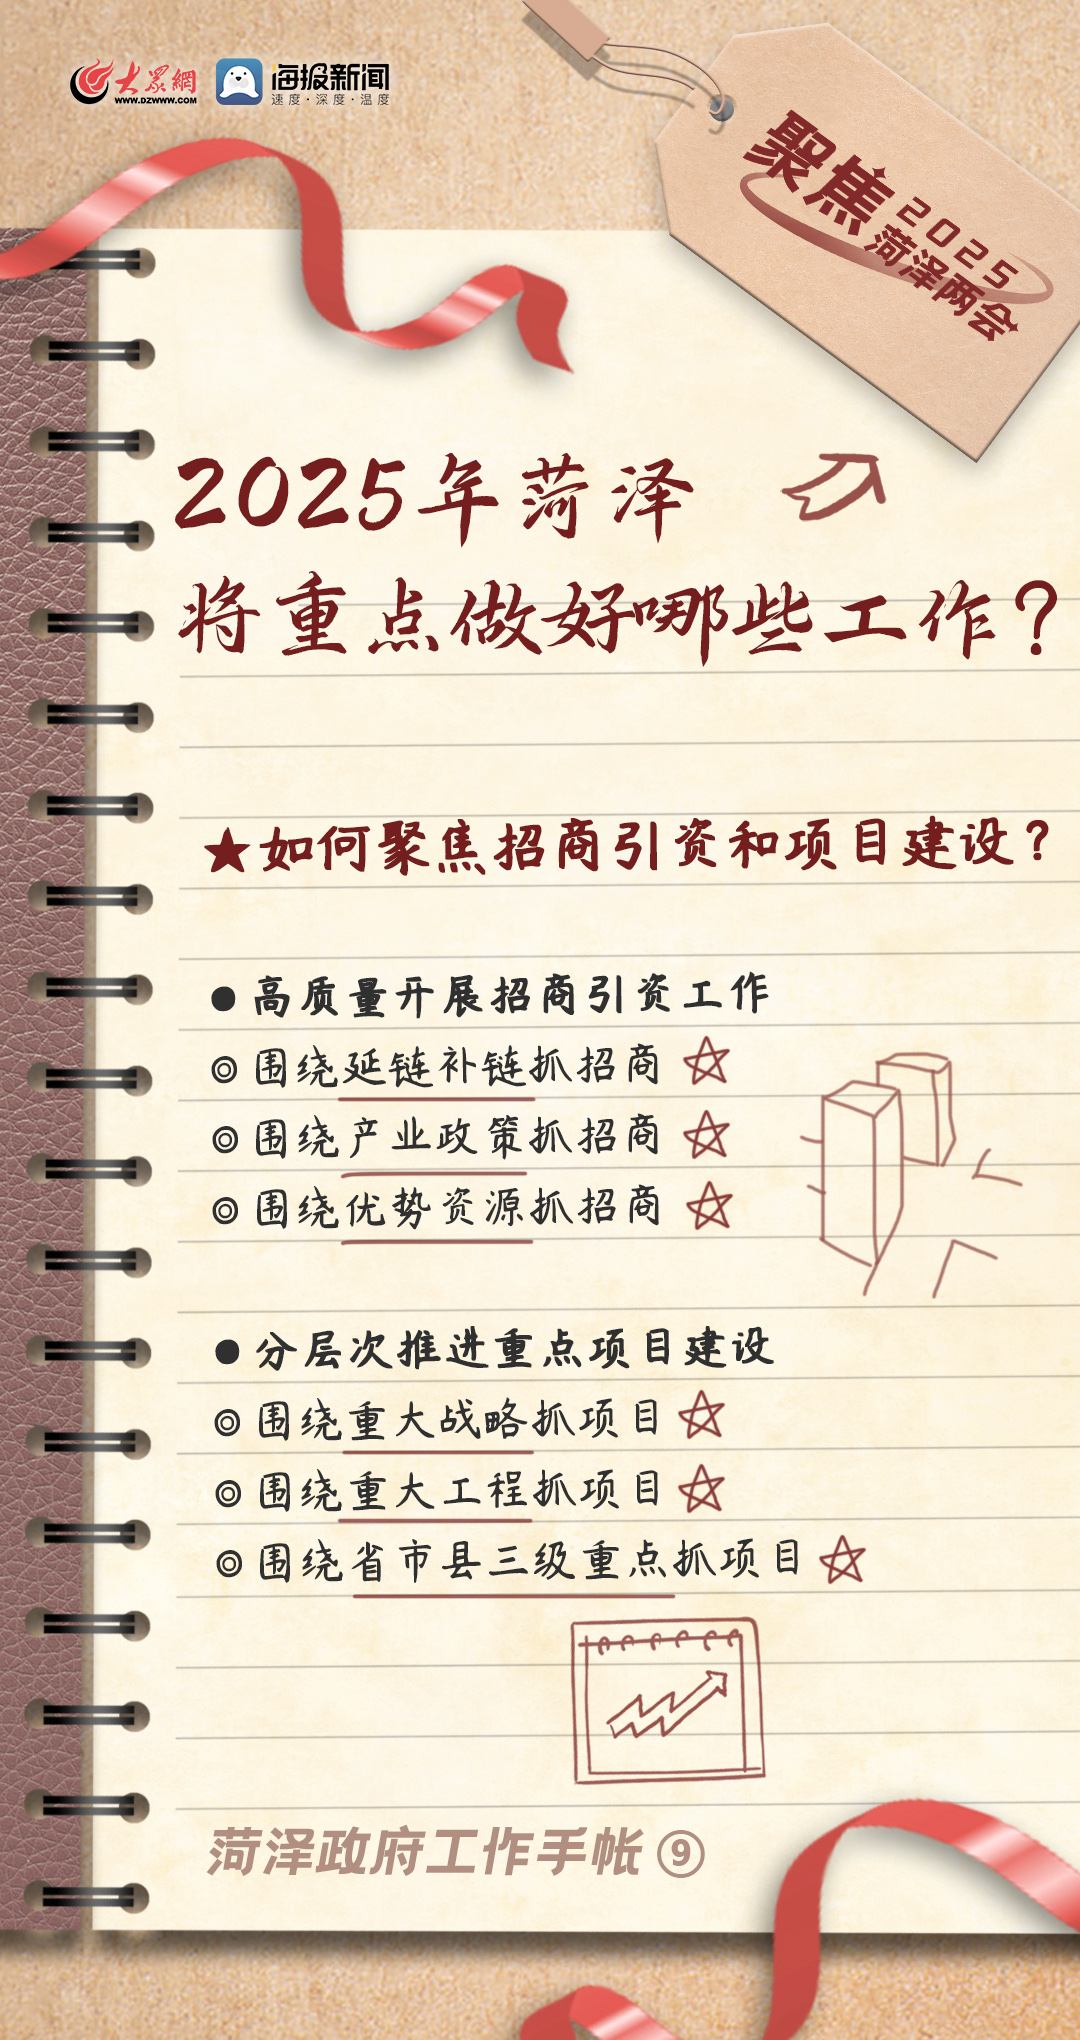 大眾網
WWW.DZWWW.COM
海报新闻
速度·深度·温度
聚焦
2025
菏泽两会
2025年菏泽
将重点做好哪些工作?
★如何聚焦招商引资和项目建设?
●高质量开展招商引资工作
◎围绕延链补链抓招商
◎围绕产业政策抓招商
◎围绕优势资源抓招商
●分层次推进重点项目建设
◎围绕重大战略抓项目
◎围绕重大工程抓项目
◎围绕省市县三级重点抓项目
菏泽政府工作手帐⑨